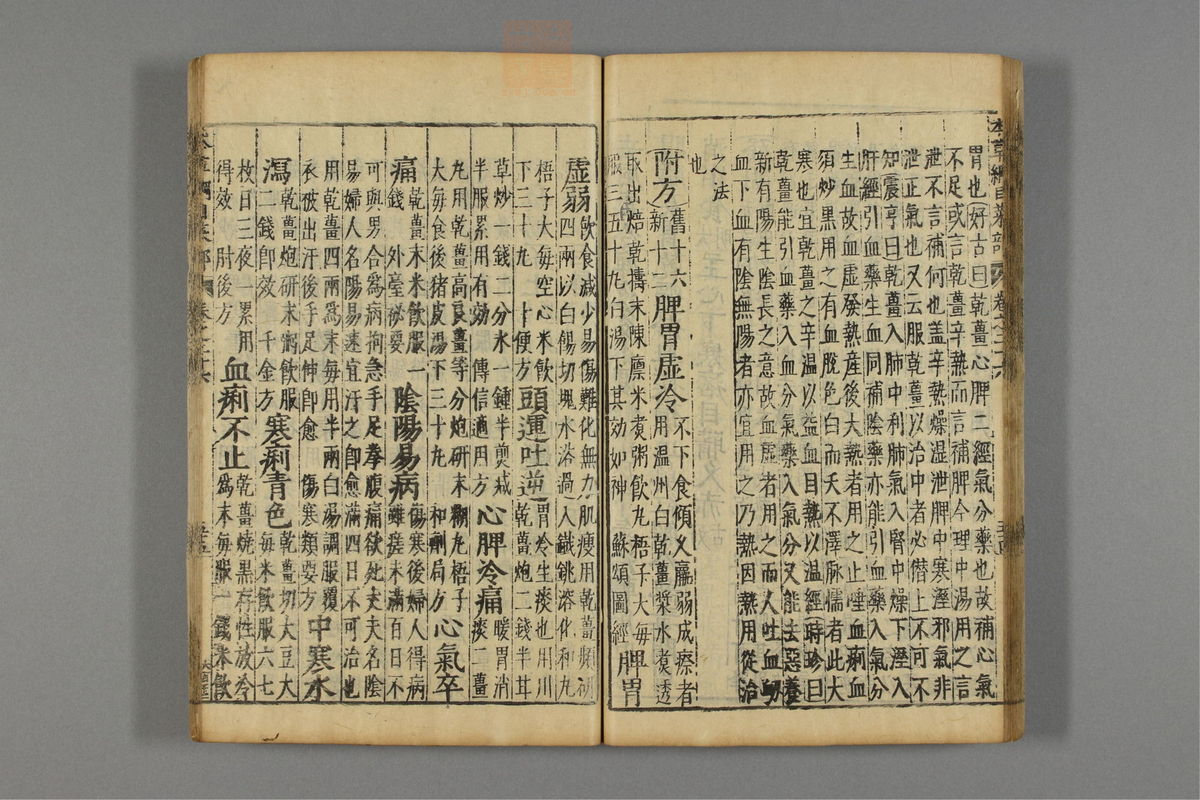 胃也好古曰乾薑心脾二經氣分藥也故補心氣
不足或言乾薑辛熱而言補脾今理中湯用之言
泄不言補何也盖辛熱燥濕泄脾中寒溼邪氣非
泄正氣也又云服乾薑以治中者必僭上不可不
知震亨曰乾薑入肺中利肺氣入腎中燥下溼入
肝經引血藥生血同補陰藥亦能引血藥入氣分
生血故血虛發熱產後大熱者用之止唾血痢血
須炒黑用之有血脫色白而夭不澤脈濡者此大
寒也宜乾薑之辛温以益血目熱以温經時珍曰
乾薑能引血藥入血分氣藥入氣分又能去惡養
新有陽生陰長之意故血虛者用之而人吐血衂
血下血有陰無陽者亦宜用之乃熱因熱用從治
之法
也
附方舊十六新十二脾胃虛冷不下食傾乂羸弱成瘵者用温州白乾薑漿水煮透
取出焙乾擣末陳廩米煮粥飲丸梧子大每
服三五十九白湯下其効如神 蘇頌圖經 脾胃
虛弱飲食減少易傷難化無力肌瘦用乾薑頻研四兩以白餳切塊水浴過入鐵銚溶化和丸
梧子大每空心米飲
下三十九 十便方 頭運吐逆胃冷生痰也用川乾薑炮二錢半甘
草炒一錢二分水一鍾半煎減
半服累用有効 傳信適用方 心脾冷痛暖胃消痰二薑
丸用乾薑高良薑等分炮研末糊丸梧子
大每食後猪皮湯下三十九 和劑局方 心氣卒
痛乾薑末米飲服一錢 外臺祕要 陰陽易病傷寒後婦人得病雖瘥未滿百日不
可與男合爲病拘急手足拳腹痛欲死丈夫名陰
易婦人名陽易速宜汗之即愈滿四日不可治也
用乾薑四兩爲末每用半兩白湯調服覆
衣被出汗後手足伸即愈 傷寒類要方 中寒水
瀉乾薑炮研末粥飲服二錢即效 千金方 寒痢青色乾薑切大豆大每米飲服六七
枚日三夜一累用
得效 肘後方 血痢不止乾薑燒黑存性放冷爲末每服一錢米飲